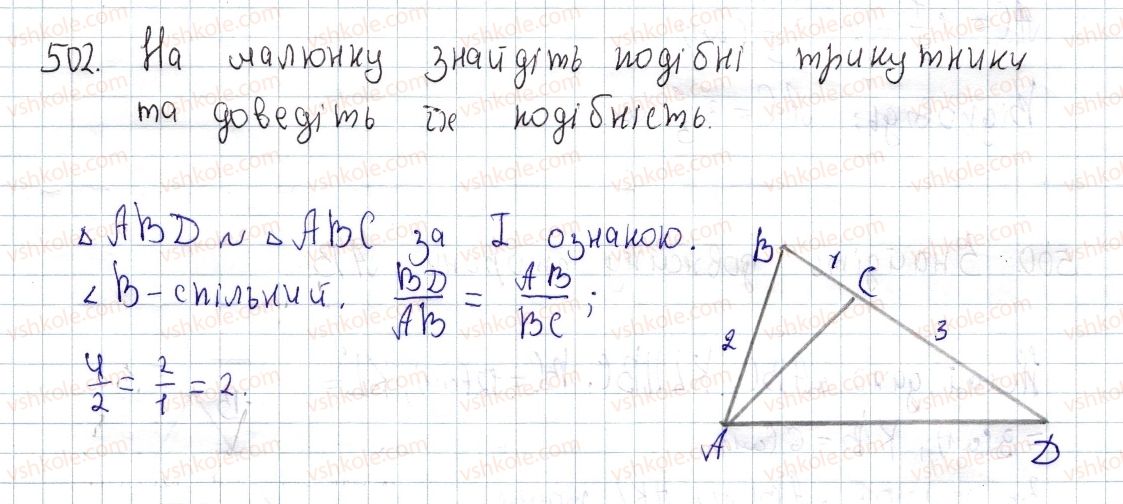 502. На малюнку знайдіть подібні трикутники
та доведіть їх подібність.
△ ABD ~ △ ABC за I ознакою.
∠ B – спільний. BD/AB = AB/BC;
4/2 = 2/1 = 2.
B
1
C
2
3
A
D